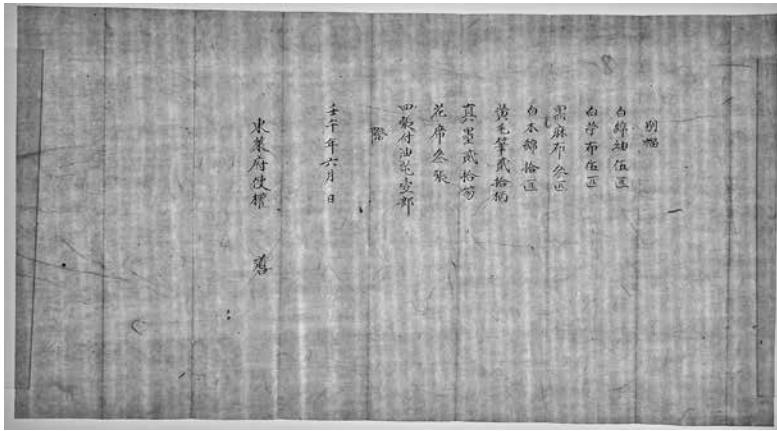 別幅
白綿紬伍匹
白苧布伍匹
黑麻布參匹
白木綿拾匹
黃毛筆貳拾柄
真墨貳拾笏
花席參張
四張付油芚壹部
際
壬午年六月 日
東萊府使權